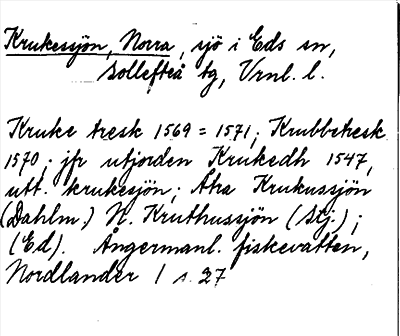 Krukessjön, Norra, sjö i Eds sn,
Sollefteå tg, Vrnl. l.
Kruke tresk 1569 = 1571; Krubbetresk
1570; jfr utjorden Krukedh 1547,
utt. krukesjön; Åtra Krukussjön
(Dahlm.) N. Kruthussjön (Stj.);
(Ed). Ångermanl. fiskevatten,
Nordlander 1 s. 27